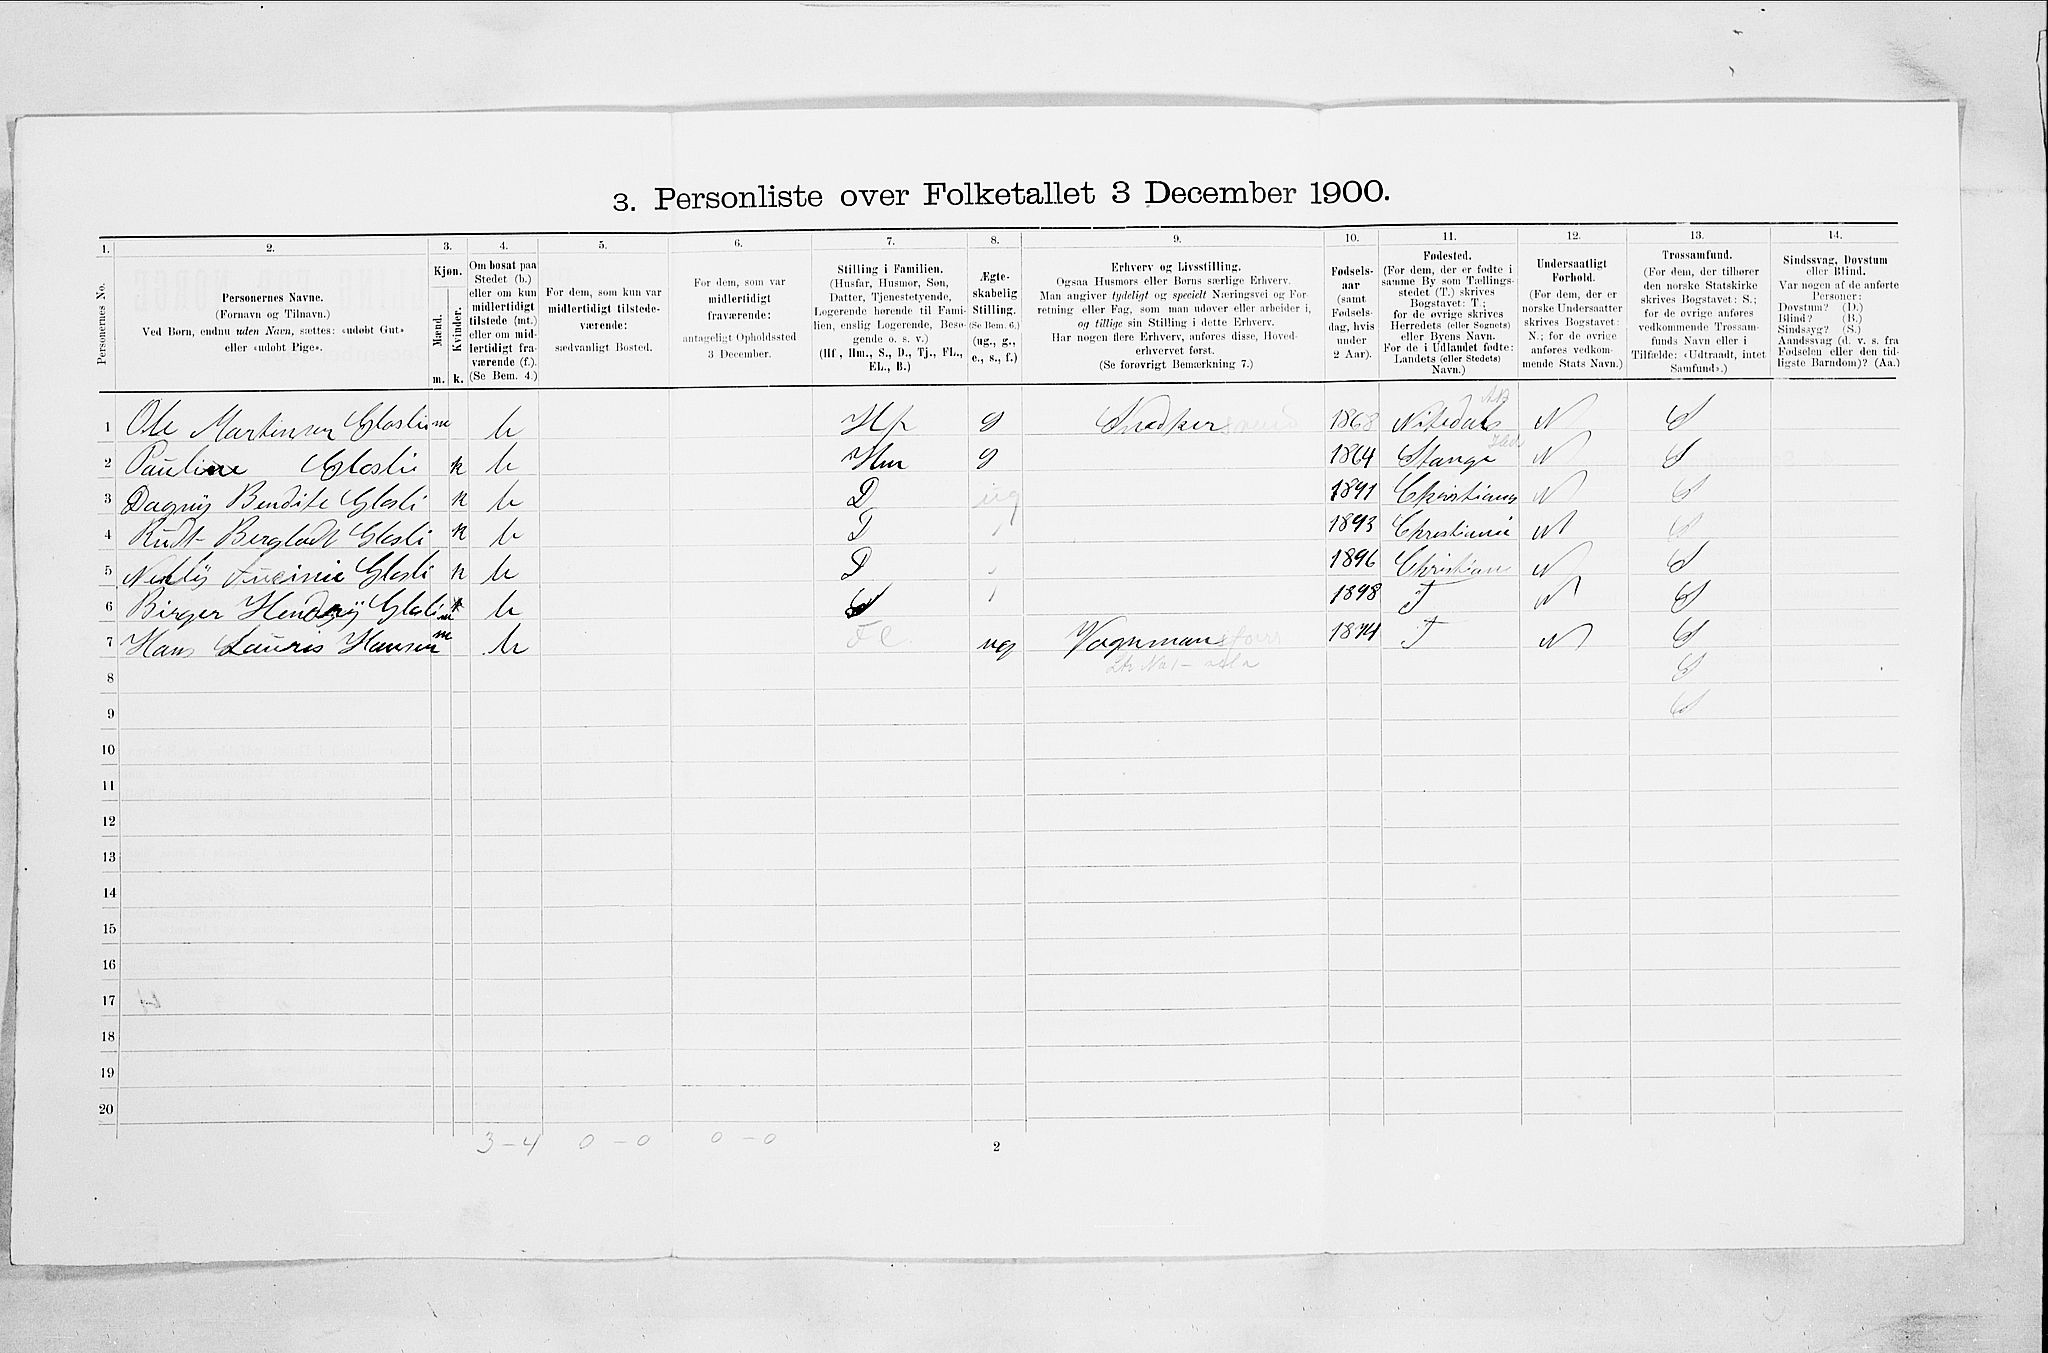 3. Personliste over Folketallet 3 December 1900.
1. 2. 3. 4. 5. 6. 7. 8. 9. 10. 11. 12. 13. 14.
Personernes No.
Personernes Navne.
(Fornavn og Tilnavn.)
Ved Børn, endnu uden Navn, sættes: «udøbt Gut»
eller «udøbt Pige».
Kjøn.
Mænd.
Kvinder.
m. k.
Om bosat paa
Stedet (b.)
eller om kun
midlertidigt
tilstede (mt.)
eller om mid-
lertidigt fra-
værende (f.).
(Se Bem. 4.)
For dem, som kun var
midlertidigt tilstede-
værende:
sædvanligt Bosted.
For dem, som var
midlertidigt
fraværende:
antageligt Opholdssted
3 December.
Stilling i Familien.
(Husfar, Husmor, Søn,
Datter, Tjenestetyende,
Logerende hørende til Fami-
lien, enslig Logerende, Besø-
gende o. s. v.)
(Hf., Hm., S., D., Tj., FL.,
EL., B.)
Ægte-
skabelig
Stilling.
(Se Bem. 6.)
(ug., g.,
e., s., f.)
Erhverv og Livsstilling.
Ogsaa Husmors eller Børns særlige Erhverv.
Man angiver tydeligt og specielt Næringsvei og For-
retning eller Fag, som man udøver eller arbeider i,
og tillige sin Stilling i dette Erhverv.
Har nogen flere Erhverv, anføres disse, Hoved-
erhvervet først.
(Se forøvrigt Bemærkning 7.)
Fødsels-
aar
(samt
Fødsels-
dag, hvis
under
2 Aar).
Fødested.
(For dem, der er fødte i
samme By som Tællings-
stedet (T.) skrives
Bogstavet: T.;
for de øvrige skrives
Herredets (eller Sognets)
eller Byens Navn.
For de i Udlandet fødte:
Landets (eller Stedets)
Navn.)
Undersaatligt
Forhold.
(For dem, der er
norske Undersaatter
skrives Bogstavet:
N.; for de øvrige
anføres vedkom-
mende Stats Navn.)
Trossamfund.
(For dem, der tilhører
den norske Statskirke
skrives Bogstavet: S.;
for de øvrige anføres
vedkommende Trossam-
funds Navn eller i
Tilfælde: «Udtraadt, intet
Samfund».)
Sindssvag, Døvstum
eller Blind.
Var nogen af de anførte
Personer:
Døvstum? (D.)
Blind? (B.)
Sindssyg? (S.)
Aandssvag (d. v. s. fra
Fødselen eller den tid-
ligste Barndom)? (Aa.)
1 Ole Martinsen Glosli m b Hf g Snedkersvend 1868 Nitedal N S
2 Pauline Glosli k b Hm g 1864 Stange N S
3 Dagny Bendite Glosli k b D ug 1891 Christiania N S
4 Rudt Bergladt Glosli k b D 1893 Christiania N S
5 Nelly Glosli k b D 1896 Christian N S
6 Birger Hendry Glosli m b S 1898 T N S
7 Hans Lauris Hansen m b FL ug Vognmand 1874 T N S
8 S
9 S
10
11
12
13
14
15
16
17
18
19
20
3-4 0-0 0-0
2